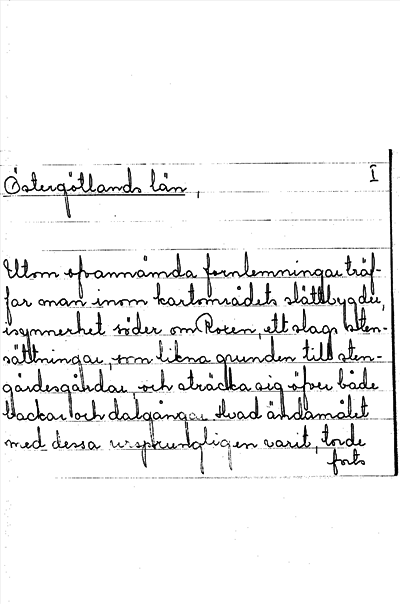 Östergötlands län,
I
Utom ofvannämda fornlemningar träf-
far man inom kartområdets slättbygder,
isynnerhet söder om Roxen, ett slags sten-
sättningar, som likna grunden till sten-
gärdesgårdar, och sträcka sig öfver både
backar och dalgångar. Hvad ändamålet
med dessa ursprungligen varit, torde
forts